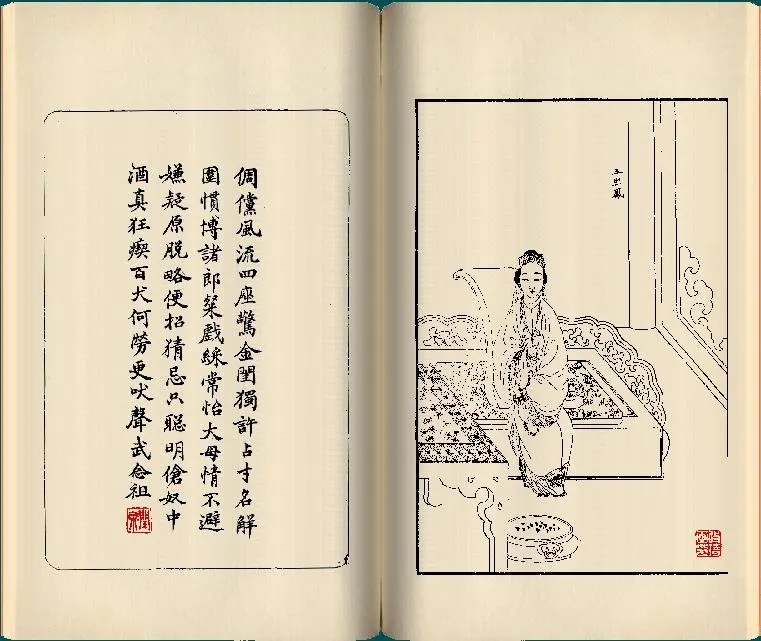 王熙鳳
倜儻風流四座驚金閨獨許占才名解
圍慣博諸郎粲戲綵常怡大母情不避
嫌疑原脫略便招猜忌只聰明傖奴中
酒真狂瘈百犬何勞更吠聲武念祖